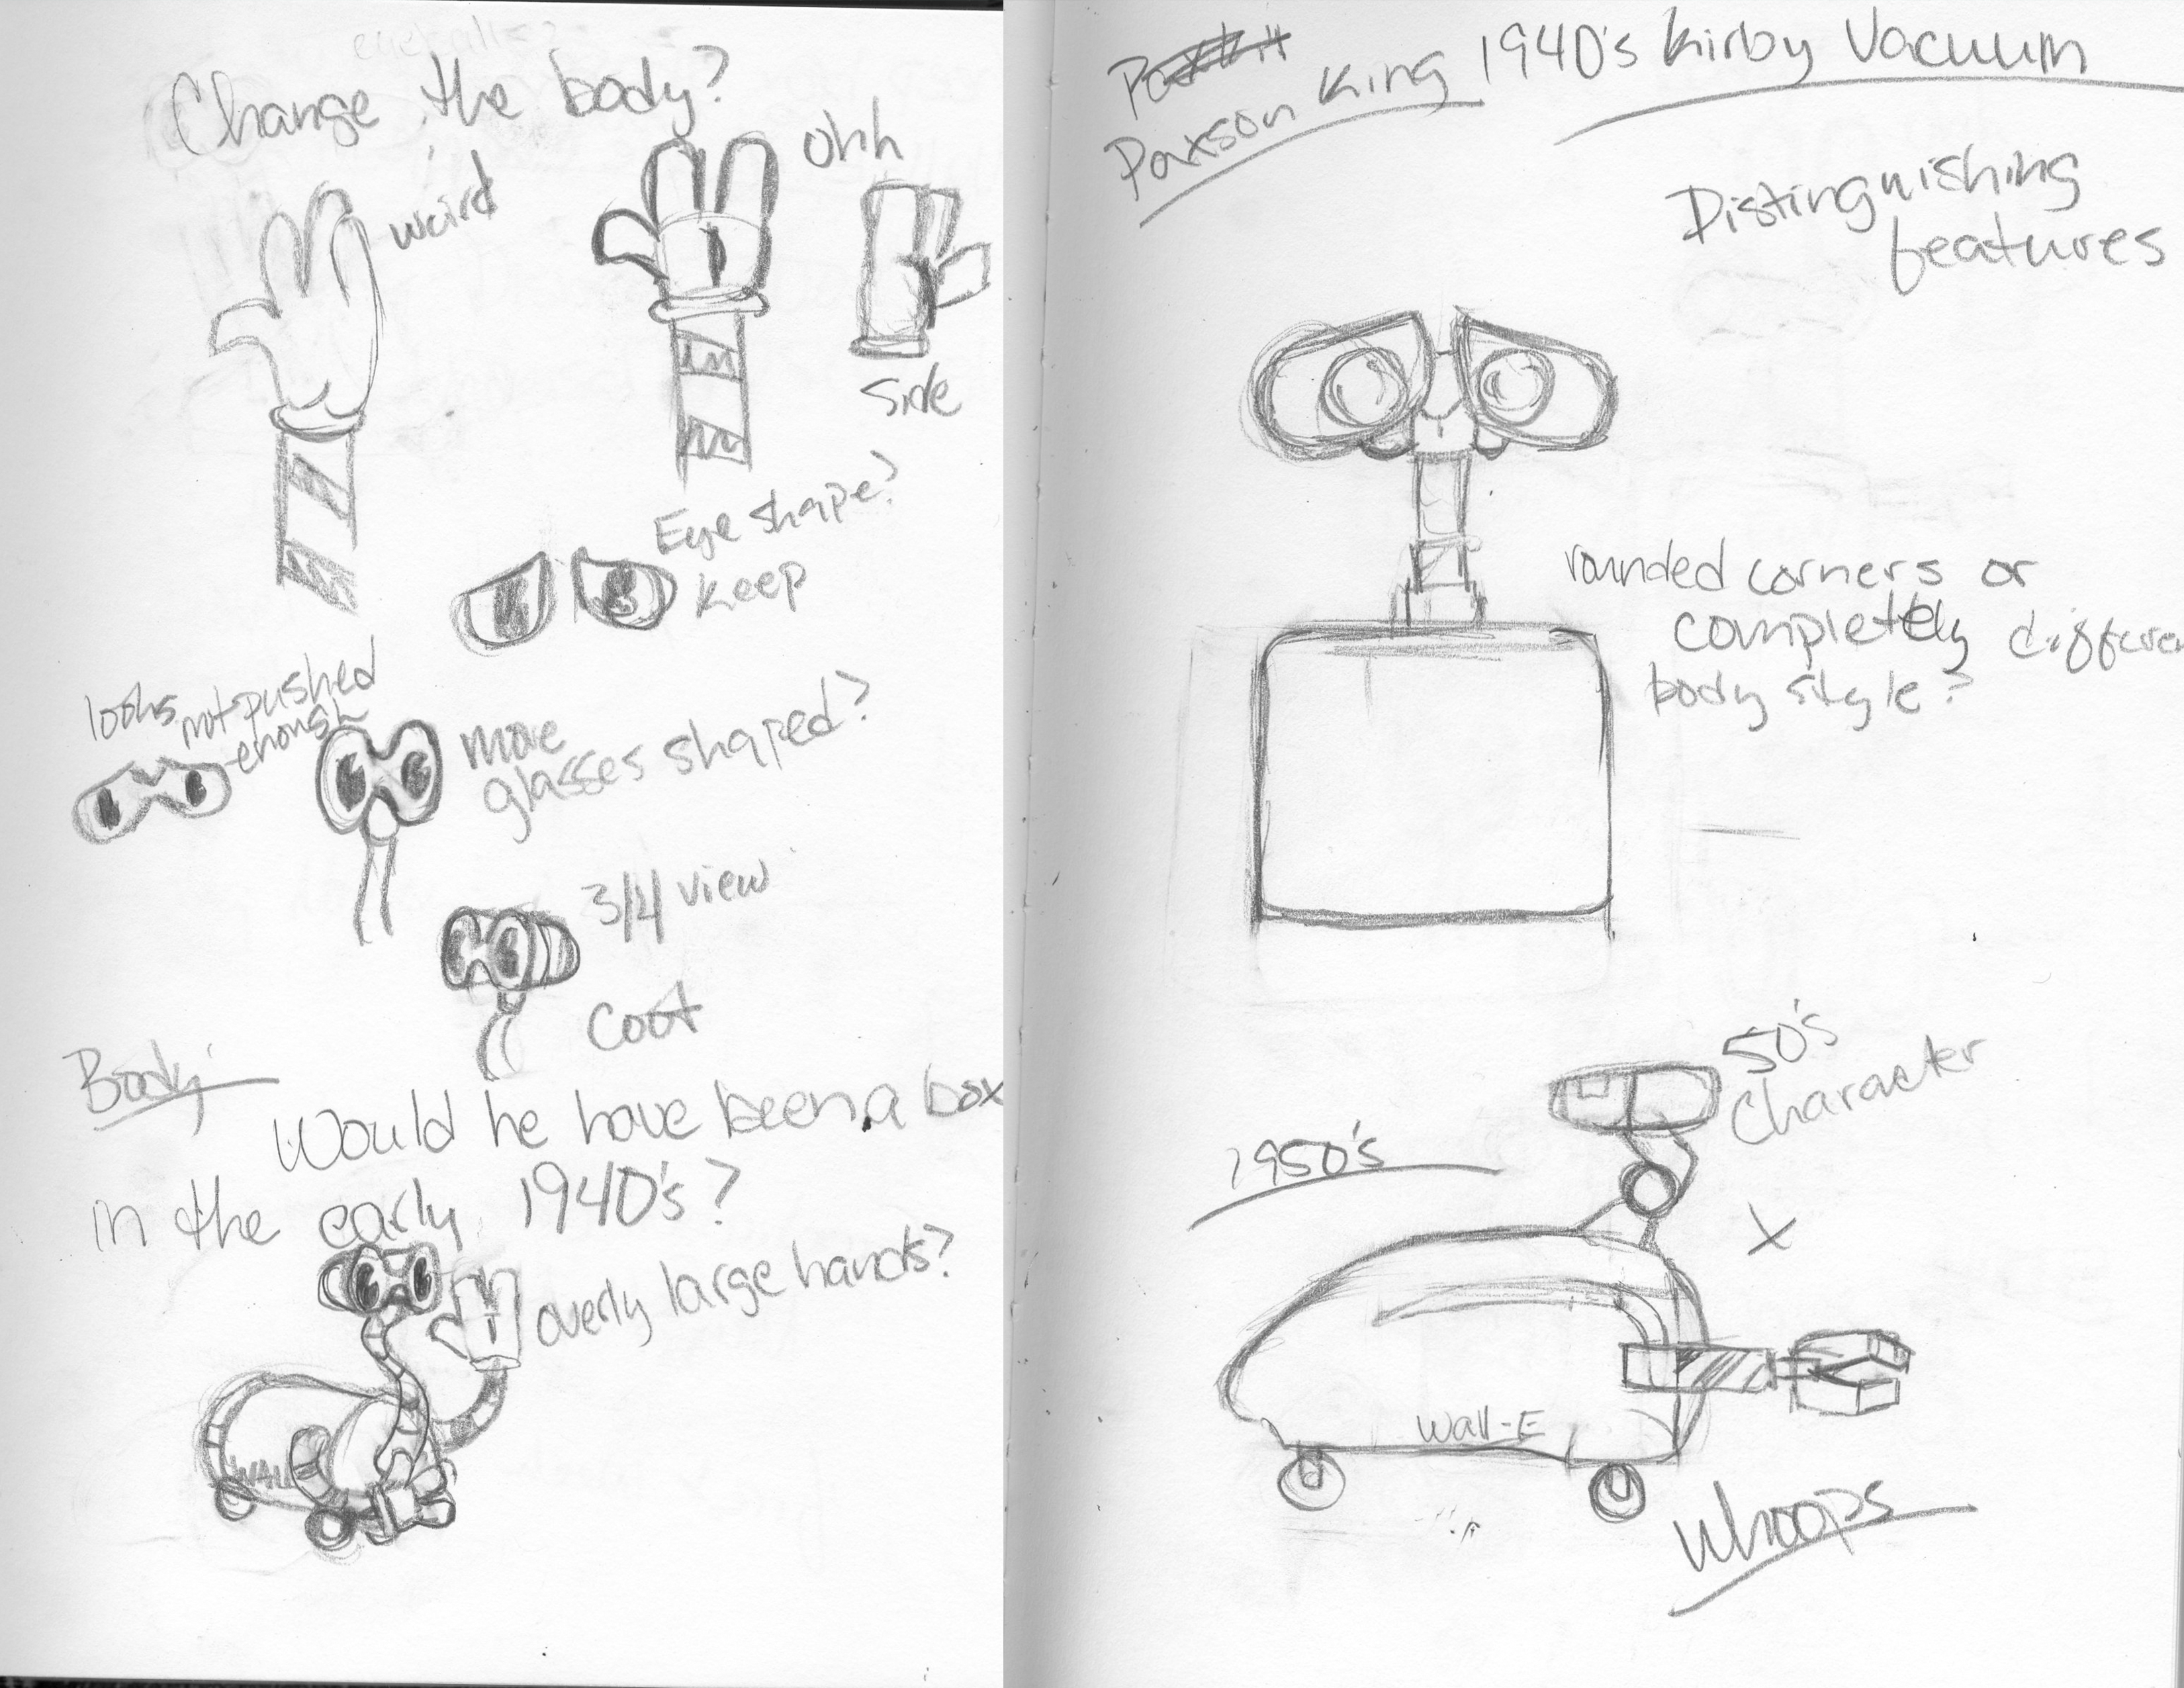 Change the body?
weird
Ohh
Side
Eye shape?
keep
looks not pushed
enough
more
glasses shaped?
3/4 view
Body:
Would he have been a box
in the early 1940's?
overly large hands?
WALL
1940's Kirby Vacuum
Paxson King
Distinguishing
features
rounded corners or
completely differen
body style?
50's
Character
1950's
X
Wall-E
Whoops